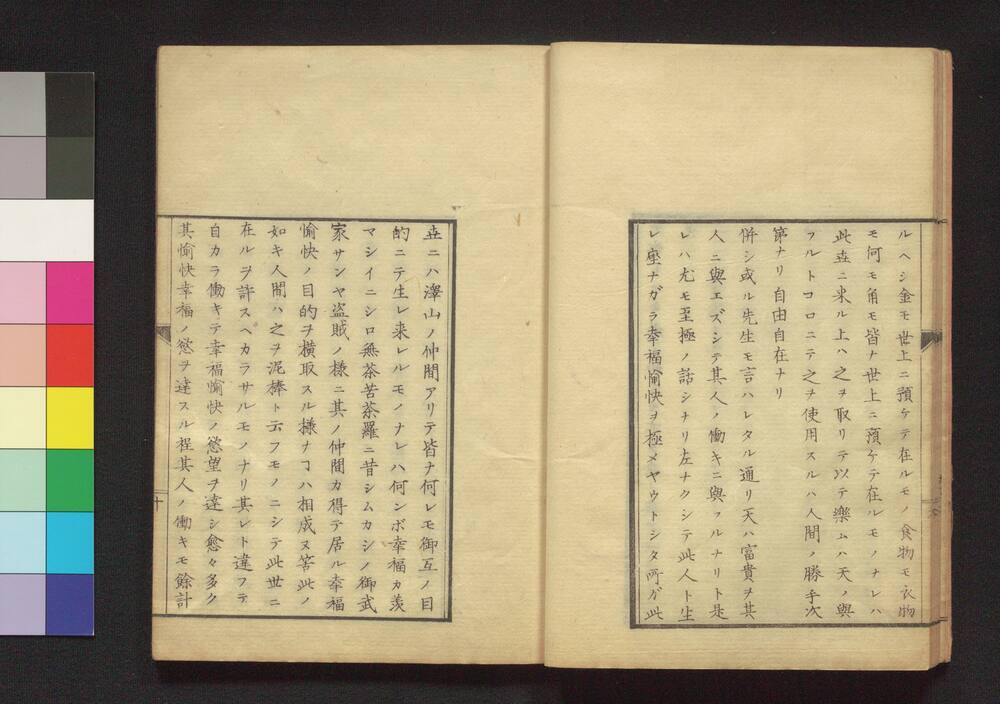 ルヘシ金モ世上ニ預ケテ在ルモノ食物モ衣物
モ何モ角モ皆ナ世上ニ預ケテ在ルモノナレハ
此世ニ来ル上ハ之ヲ取リテ以テ樂ムハ天ノ與
フルトコロニテ之ヲ使用スルハ人間ノ勝手次
第ナリ自由自在ナリ
併シ或ル先生モ言ハレタル通リ天ハ富貴ヲ其
人ニ與エズシテ其人ノ働キニ與フルナリト是
レハ尤モ至極ノ話シナリ左ナクシテ此人ト生
レ座ナガラ幸福愉快ヲ極メヤウトシタ所ガ此
世ニハ澤山ノ仲間アリテ皆ナ何レモ御互ノ目
的ニテ生レ来レルモノナレハ何ンボ幸福カ羨
マシイニシロ無茶苦茶羅ニ昔シムカシノ御武
家サンヤ盗賊ノ様ニ其ノ仲間カ得テ居ル幸福
愉快ノ目的ヲ横取スル様ナヿハ相成ヌ筈此ノ
如キ人間ハ之ヲ泥棒ト云フモノニシテ此世ニ
在ルヲ許スヘカラサルモノナリ其レト違フテ
自カラ働キテ幸福愉快ノ慾望ヲ達シ愈々多ク
其愉快幸福ノ慾ヲ達スル程其人ノ働キモ餘計
十